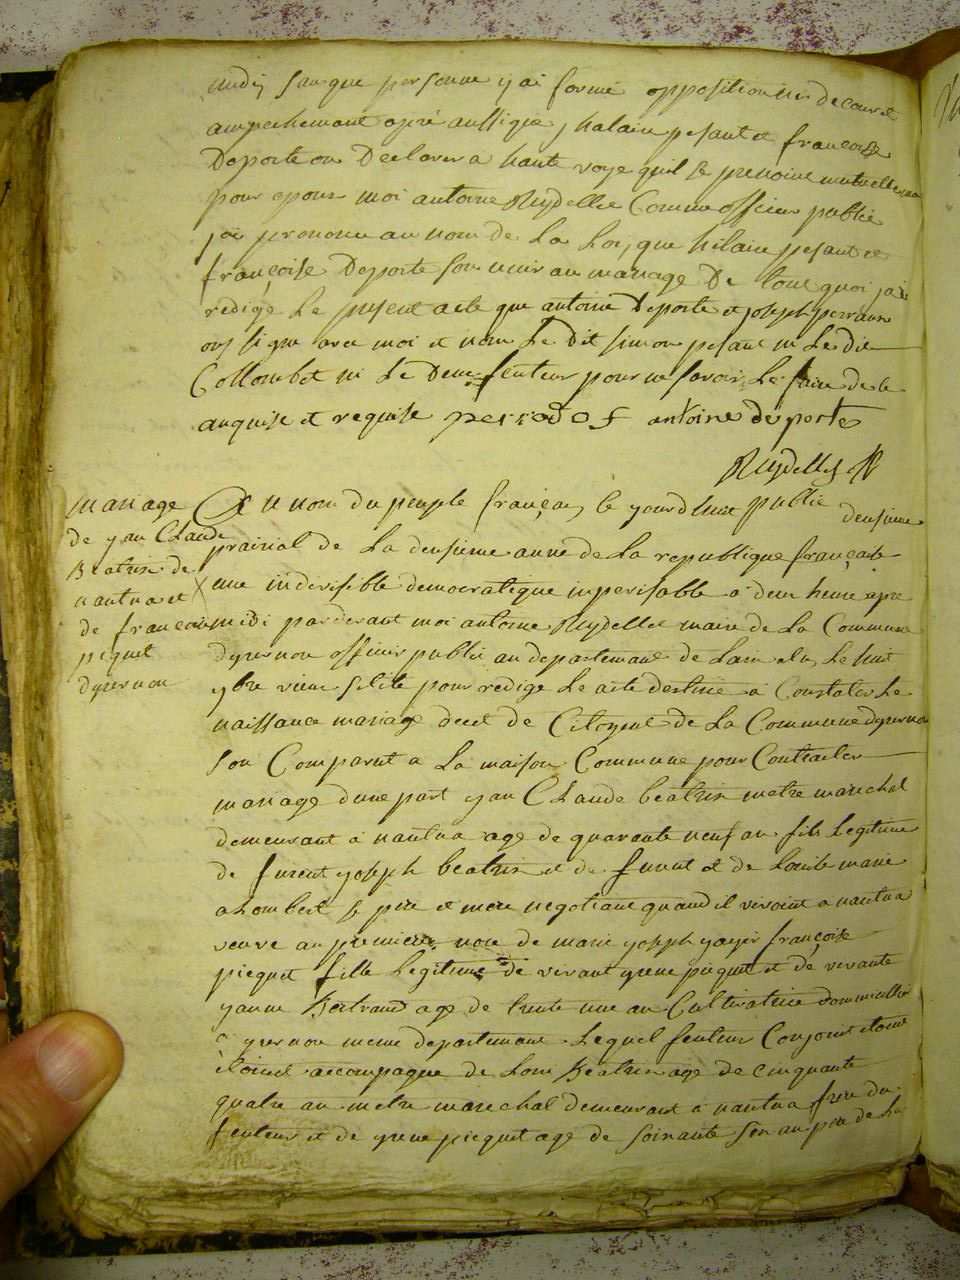 midy sanque personne y ai formé opposition
ampechemant apré aussique hilaire pesant et françoise
Deporte on Declarer a haute voye quil se prenoine mutuellemen
pour epour moi antoine Reydellet Comme officier public
jai prononcé au nom de La Loi, que hilaire pesant et
françoise Deporte son unir au mariage De tout quoi jai
redigé Le present acte que antoine Deporte et joseph perraux
ons signe avec moi et non Le Dit simon pesant ni Le dit
Collombet ni Le Deux feuteur pour ne savoir Le faire de ce
anquise et requise perrodof antoine deporte
Reydellet
mariage
de yan Claude
Beatrix de
nantua et
de françoise
piquet
dyzernon
Au nom du peuple françai, le yourdhuit public deusieme
prairial de La deusieme anné de La republique françaîse
une indivisible democratique inperisable a deux heure apre
midi pardevant moi antoine Reydellet maire de La Commune
dyzernon officier public au departemant de Lain elu Le huit
pour redigé Le acte destiné a Constater Le
naissance mariage decé de Citoyens de La Commune dyzernon
son Comparut a La maison Commune pour Contracter
mariage dune part yan Claude beatrix metre marechal
demeurant a nantua age de quarante neuf an fils Legitime
de furent yoseph beatrix et de furent et de Louise marie
alombert se pere et mere negotiant quand il vivoint a nantua
veuve au premiere noce de marie yoseph françoise
picquet fille Legitime de vivant yrene picquet et de vivante
yanne Bertrand age de trente une an Cultivatrice dommicillié
a yzernon meme departemant. Lequel feuteur Conjoint
étoient accompagne de Loui Beatrix age de cinquante
quatre an metre marechal demeurant a nantua frere du
feuteur et de yrene picquet age de soixante sen an pere de La